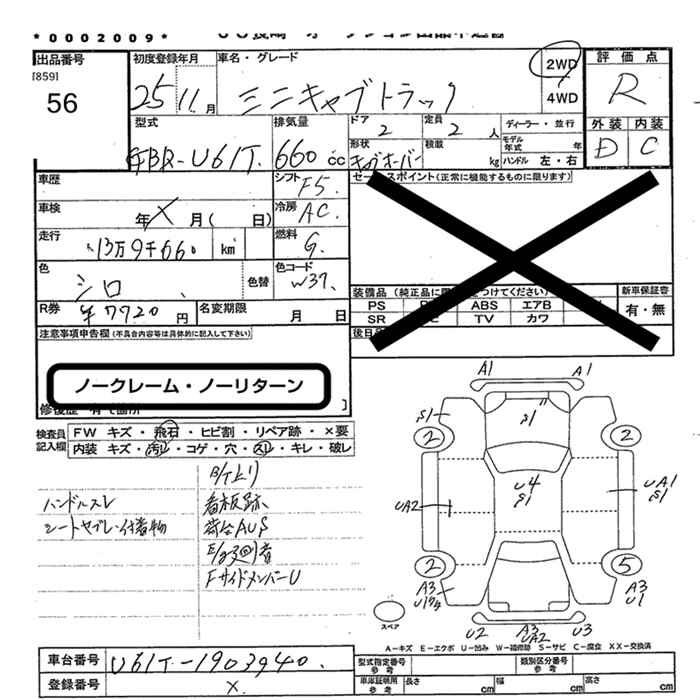 *0002009*
出品番号
[859]
56
初度登録年月
25 11月
車名・グレード
ミニキャブトラック
2WD
4WD
評価点
R
外装 内装
D C
型式
GBR-U61T.
排気量
660 cc
ドア
2
定員
2 人
形状
積載
kg
ディーラー・並行
モデル年式
年
ハンドル 左・右
車歴
シフト
F5.
セールスポイント(正常に機能するものに限ります)
車検
年 X 月( 日)
冷房
AC.
走行
13万9千660 km
燃料
G.
色
シロ
色替
色コード
W37.
装備品
PS ABS エアB
SR TV カワ
新車保証書
有・無
R券
¥7720 円
名変期限
月 日
後日
注意事項申告欄 (不具合内容等は具体的に記入して下さい)
ノークレーム・ノーリターン
検査員記入欄
FW キズ・飛石・ヒビ割・リペア跡・×要
内装 キズ・汚レ・コゲ・穴・スレ・キレ・破レ
ハンドルスレ
シートヤブレ・付着物
看板跡
荷台AUS
FサイドメンバーU
A1 A1
S1 S1
2 2
U4
S1
UA2
UA1
S1
2 5
A3 A3
U1
U2 A3 U3
UA2
スペア
A-キズ E-エクボ U-凹み W-補修跡 S-サビ C-腐食 XX-交換済
車台番号
U61T-1903940.
登録番号
X.
型式指定番号
参考
類別区分番号
参考
車庫証明用
参考
長さ cm
幅 cm
高さ cm